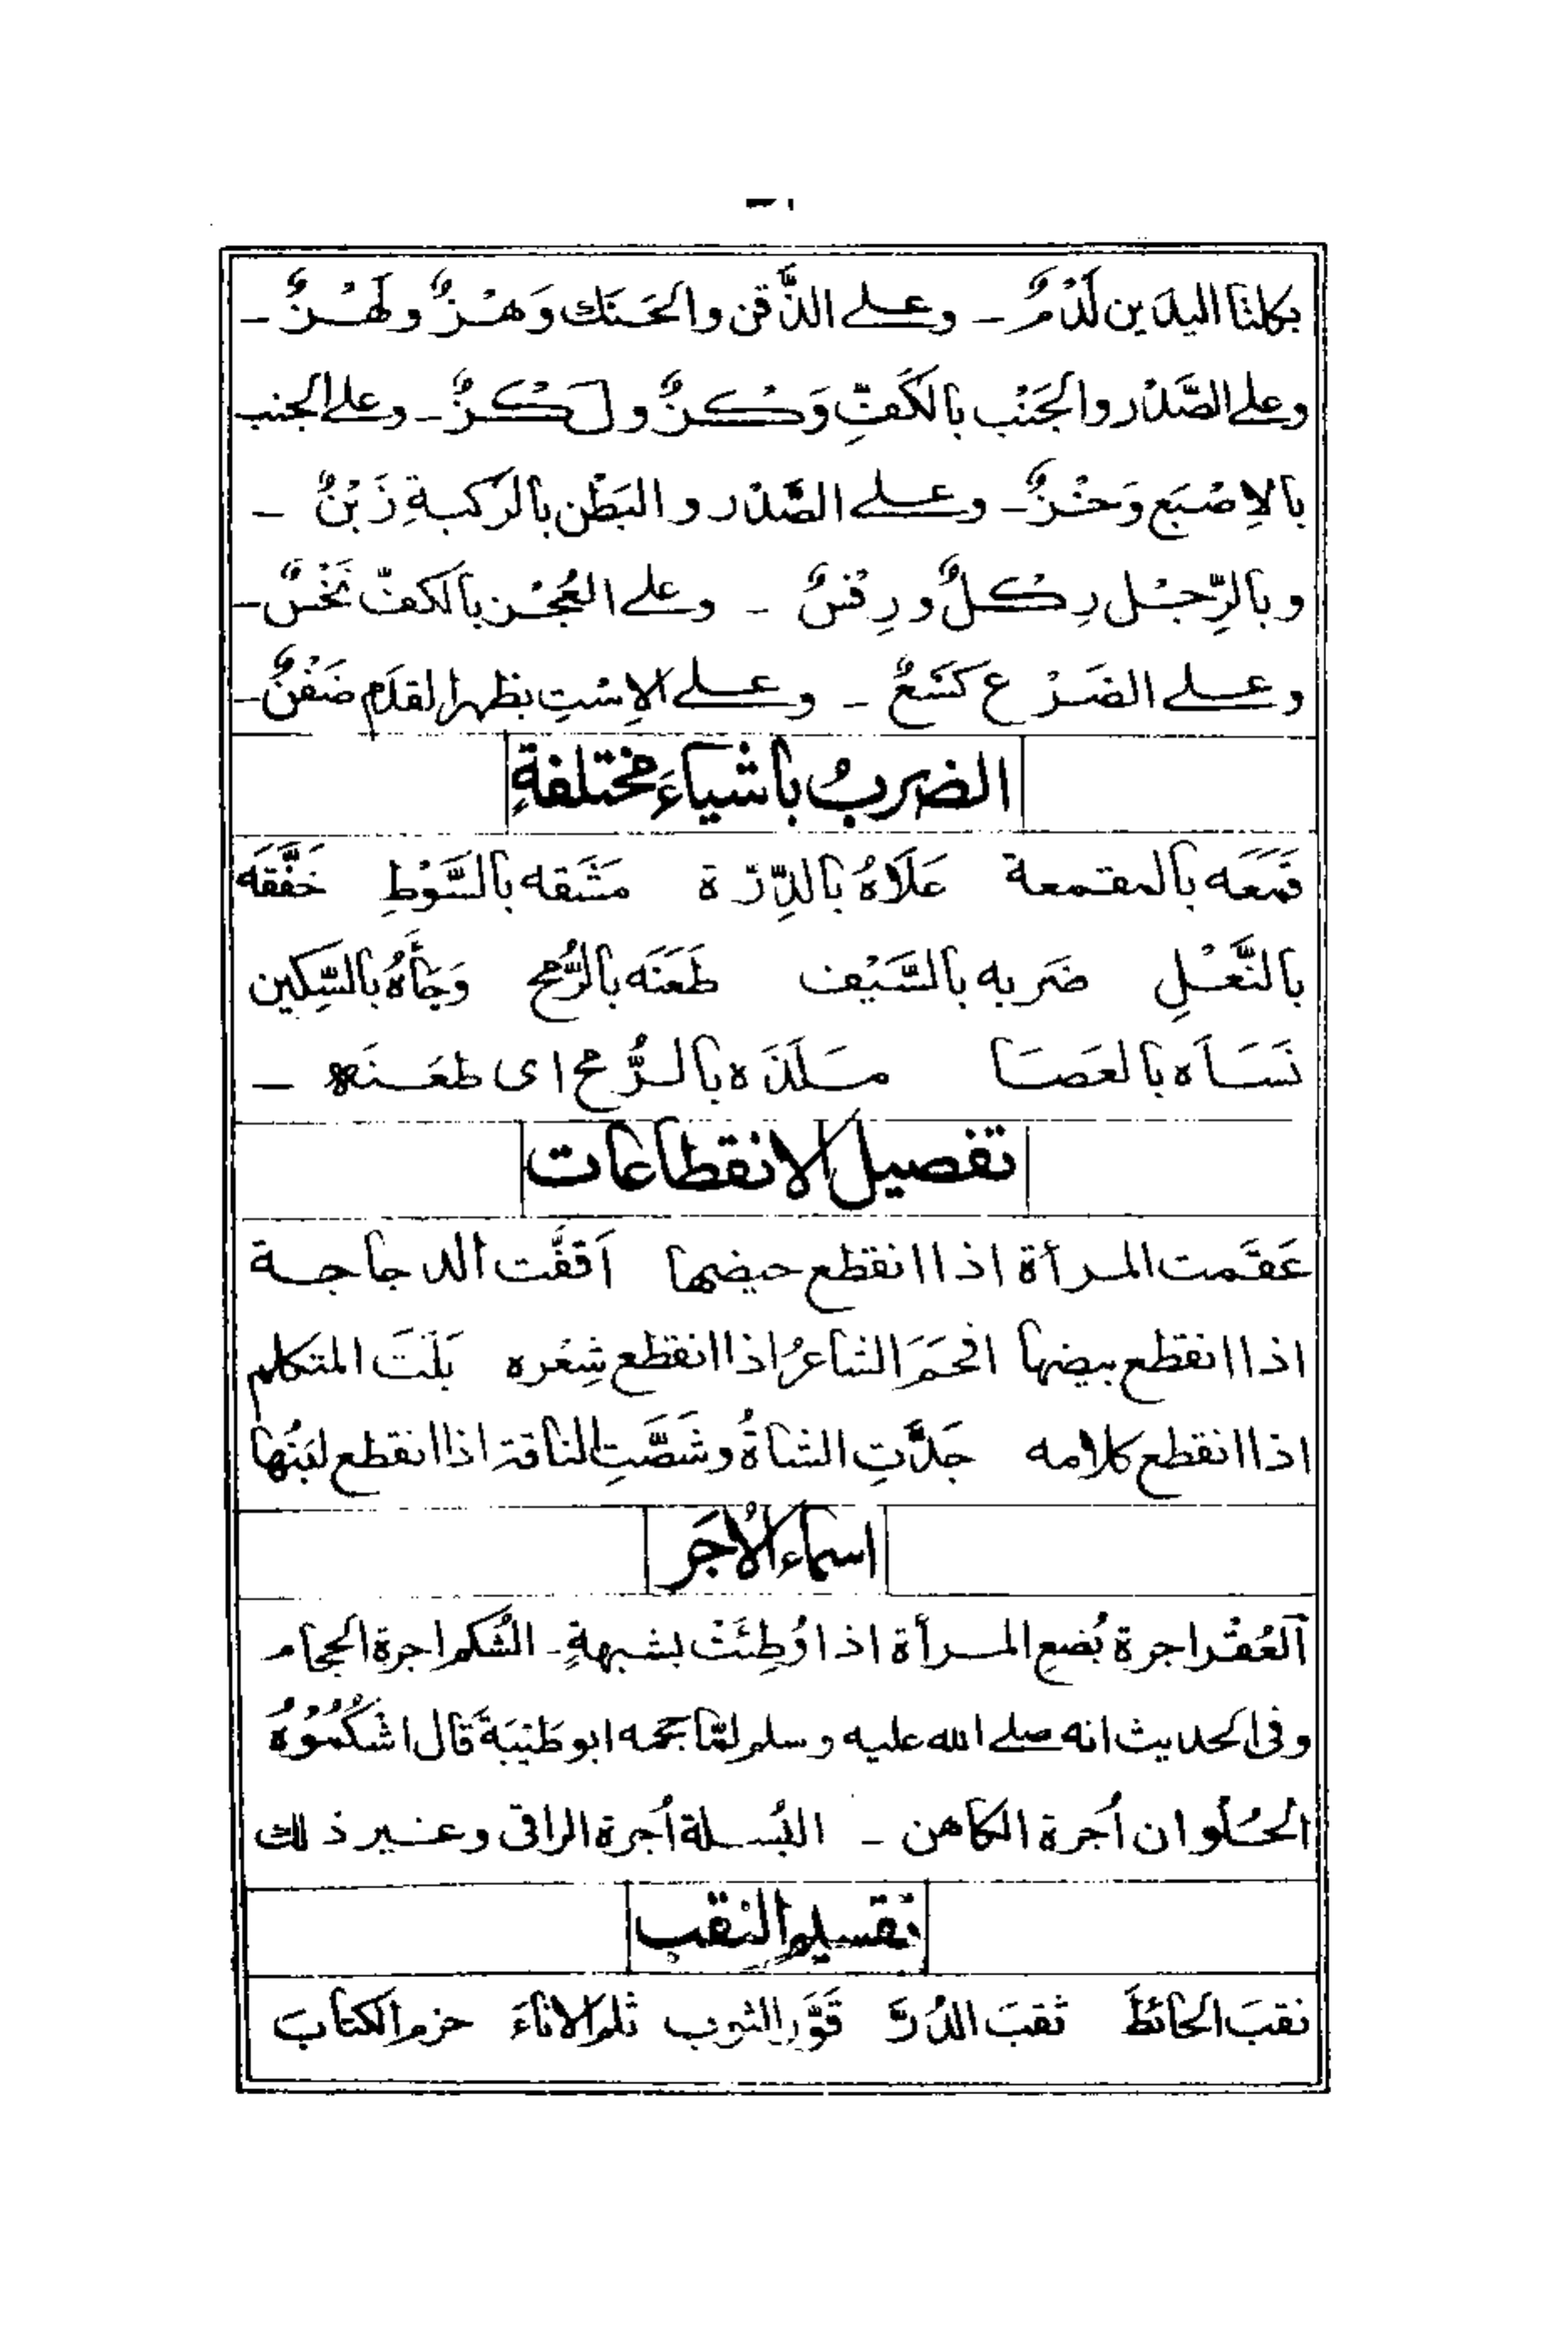 بكلتا اليدين لَدْمٌ ـ وعلى الذَّقن والحَنَك وَهْزٌ ولَهْزٌ ـ
وعلى الصَّدْر والجَنْب بالكَفِّ وَكْزٌ ولَكْزٌ ـ وعلى الجنب
بالاِصْبَع وَخْزٌ ـ وعلى الصَّدْر والبَطْن بالرُّكبةِ زَبْنٌ ـ
وبالرِّجْل رِكْلٌ ورِفْسٌ ـ وعلى العُجْز بالكفّ نَخْسٌ ـ
وعلى الضَرْع كَسْعٌ ـ وعلى الاِسْتِ بظهر القدَم ضَفْنٌ ـ
الضربُ بأشياءَ مختلفةٍ
قَمَعَه بالمقمعة عَلَاهُ بالدِّرّة مَشَقه بالسَّوْطِ خَفَّقَه
بالنَّعْلِ ضَربه بالسَّيْف طَعَنَه بالرُّمح وَجَأَهُ بالسِّكين
نَسَأَه بالعَصَا سَلَقَه بالرُّمح اى طعَنَه ـ
تفصيل الانقطاعات
عَقَمت المرأة اذا انقطع حيضها اَقفَّت الدجاجة
اذا انقطع بيضها افحَمَ الشاعرُ اذا انقطع شِعْره بَلَتَ المتكلم
اذا انقطع كلامه جَدَّتِ الشاةُ وشَصَّتِ الناقة اذا انقطع لبَنُها
اسماء الاُجَر
اَلعُقْر اجرة بُضع المرأة اذا وُطِئَتْ بشبهةٍ ـ الشُكم اجرة الحجام
وفى الحديث انه صلى الله عليه وسلم لمّا حجمه ابو طَيْبَةَ قال اشكُمُوْهُ
الحُلْوان اُجرة الكاهن ـ البُسلة اُجرة الراقى وغير ذلك
تقسيم النقب
نقبَ الحائطَ ثقبَ الدُرَّ قَوَّر الثوب ثلم الاناءَ خزم الكتابَ